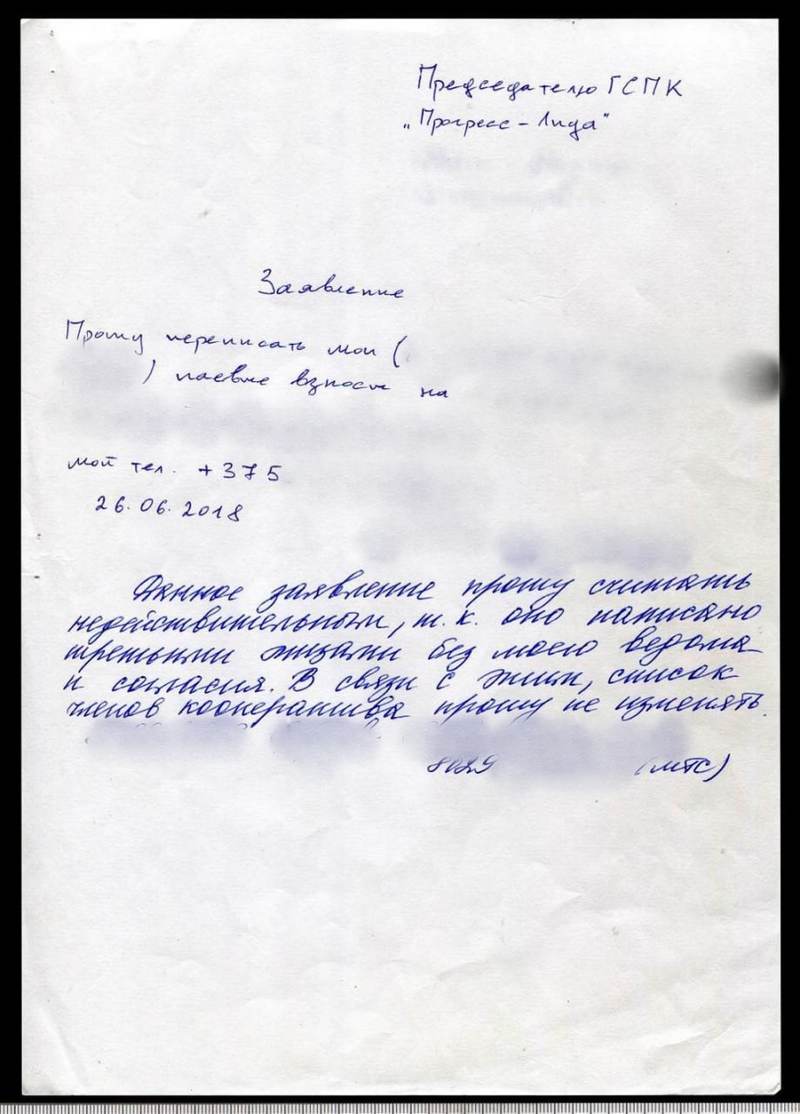 Председателю ГСПК
„Прогресс-Лида"
Заявление
Прошу переписать мои (
) паевые взносы на
мой тел. +375
26.06.2018
Данное заявление прошу считать
недействительным, т.к. оно написано
третьими лицами без моего ведома
и согласия. В связи с этим, список
членов кооператива прошу не изменять.
8029 (МТС)